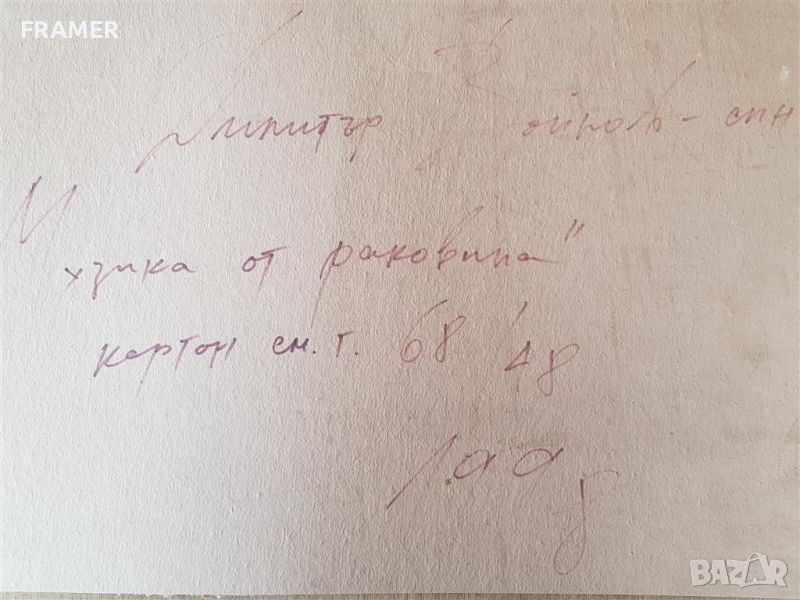 FRAMER
Димитър Войнов - син
Музика от раковина"
картон см. т. 68/48
BAZAR